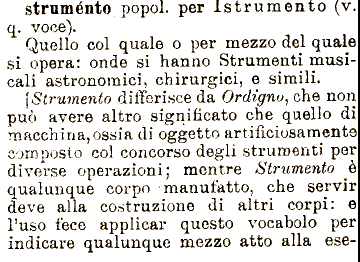 struménto popol. per Istrumento (v.
q. voce).
Quello col quale o per mezzo del quale
si opera: onde si hanno Strumenti musi-
cali astronomici, chirurgici, e simili.
[Strumento differisce da Ordigno, che non
può avere altro significato che quello di
macchina, ossia di oggetto artificiosamente
composto col concorso degli strumenti per
diverse operazioni; mentre Strumento è
qualunque corpo manufatto, che servir
deve alla costruzione di altri corpi: e
l'uso fece applicar questo vocabolo per
indicare qualunque mezzo atto alla ese-